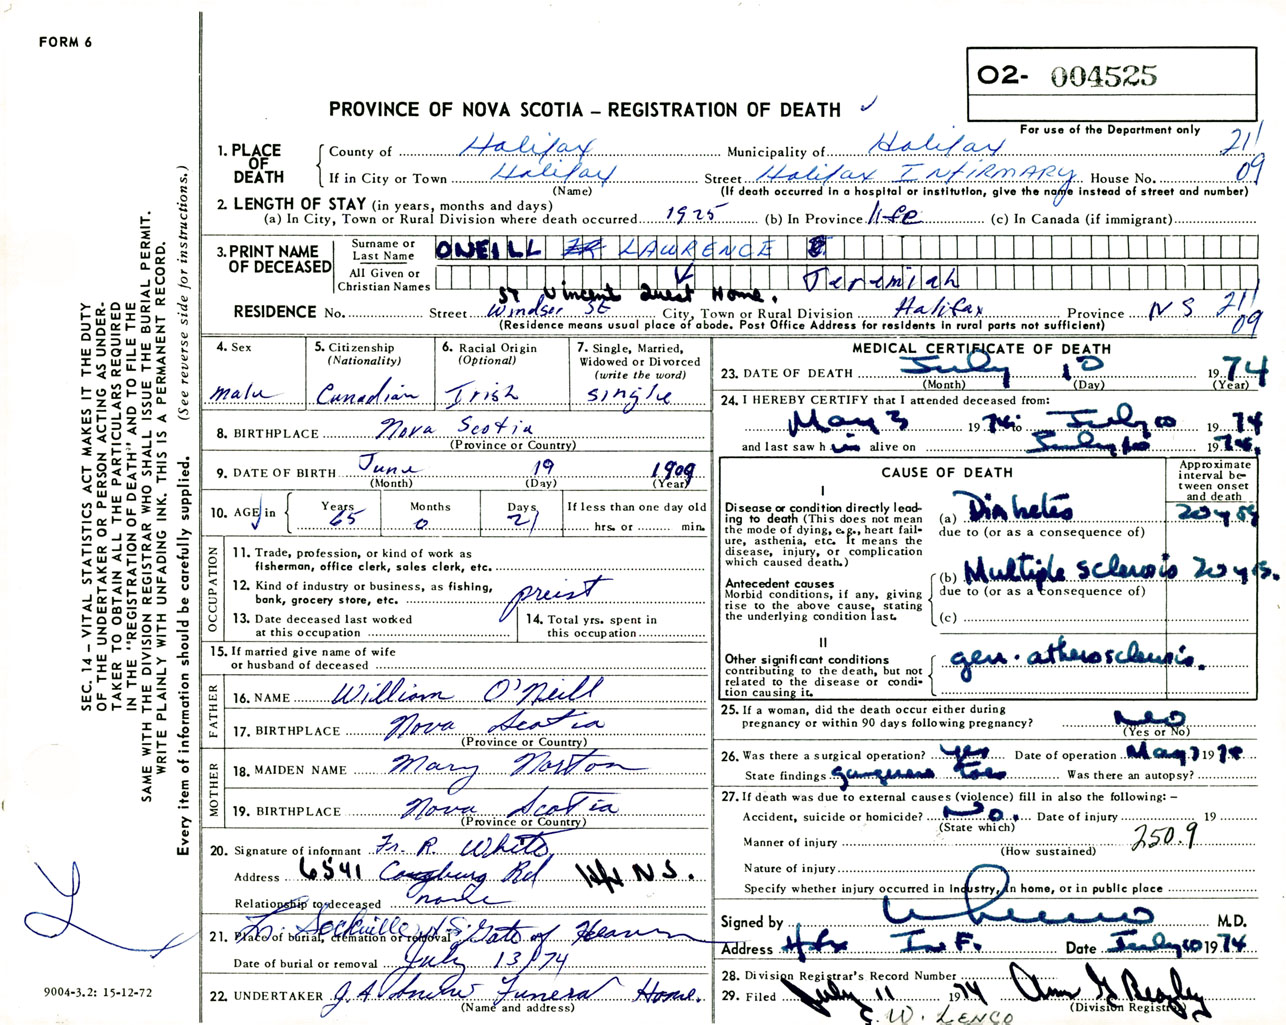 FORM 6
O2- 004525
For use of the Department only
PROVINCE OF NOVA SCOTIA – REGISTRATION OF DEATH
1. PLACE OF DEATH
County of Halifax Municipality of Halifax 21/
If in City or Town Halifax Street Halifax INFIRMARY House No. 09
(Name) (If death occurred in a hospital or institution, give the name instead of street and number)
2. LENGTH OF STAY (in years, months and days)
(a) In City, Town or Rural Division where death occurred 1925 (b) In Province life (c) In Canada (if immigrant)
3. PRINT NAME OF DECEASED
Surname or Last Name ONEILL LAWRENCE
All Given or Christian Names Jeremiah
St Vincent Guest Home.
RESIDENCE No. Street Windsor St City, Town or Rural Division Halifax Province N S 21/09
(Residence means usual place of abode. Post Office Address for residents in rural parts not sufficient)
4. Sex
male
5. Citizenship
(Nationality)
Canadian
6. Racial Origin
(Optional)
Irish
7. Single, Married,
Widowed or Divorced
(write the word)
single
8. BIRTHPLACE Nova Scotia
(Province or Country)
9. DATE OF BIRTH June 19 1909
(Month) (Day) (Year)
10. AGE in
Years Months Days If less than one day old
65 0 21 hrs. or min.
OCCUPATION
11. Trade, profession, or kind of work as
fisherman, office clerk, sales clerk, etc.
12. Kind of industry or business, as fishing,
bank, grocery store, etc. preist
13. Date deceased last worked
at this occupation
14. Total yrs. spent in
this occupation
15. If married give name of wife
or husband of deceased
FATHER
16. NAME William O'Neill
17. BIRTHPLACE Nova Scotia
(Province or Country)
MOTHER
18. MAIDEN NAME Mary Norton
19. BIRTHPLACE Nova Scotia
(Province or Country)
20. Signature of informant Fr. R. White
Address 6541 Coburg Rd Hfx N.S.
Relationship to deceased none
21. Place of burial, cremation or removal Lr. Sackville N.S. Gate of Heaven
Date of burial or removal July 13/74
22. UNDERTAKER J.A. Snow Funeral Home.
(Name and address)
MEDICAL CERTIFICATE OF DEATH
23. DATE OF DEATH July 10 1974
(Month) (Day) (Year)
24. I HEREBY CERTIFY that I attended deceased from:
May 3 1974 to July 10 1974
and last saw h im alive on July 10 1974
CAUSE OF DEATH
Approximate
interval be-
tween onset
and death
I
Disease or condition directly lead-
ing to death (This does not mean
the mode of dying, e.g., heart fail-
ure, asthenia, etc. It means the
disease, injury, or complication
which caused death.)
(a) Diabetes 20 yrs
due to (or as a consequence of)
Antecedent causes
Morbid conditions, if any, giving
rise to the above cause, stating
the underlying condition last.
(b) Multiple sclerosis 20 yrs.
due to (or as a consequence of)
(c)
II
Other significant conditions
contributing to the death, but not
related to the disease or condi-
tion causing it.
gen. atherosclerosis.
25. If a woman, did the death occur either during
pregnancy or within 90 days following pregnancy? No
(Yes or No)
26. Was there a surgical operation? yes Date of operation May 1974
State findings gangrene toes Was there an autopsy?
27. If death was due to external causes (violence) fill in also the following: –
Accident, suicide or homicide? No. Date of injury 19
(State which)
Manner of injury 250.9
(How sustained)
Nature of injury
Specify whether injury occurred in industry, in home, or in public place
Signed by M.D.
Address Hfx Inf. Date July 10 1974
28. Division Registrar's Record Number
29. Filed July 11 1974
(Division Registrar)
SEC. 14 – VITAL STATISTICS ACT MAKES IT THE DUTY
OF THE UNDERTAKER OR PERSON ACTING AS UNDER-
TAKER TO OBTAIN ALL THE PARTICULARS REQUIRED
IN THE "REGISTRATION OF DEATH" AND TO FILE THE
SAME WITH THE DIVISION REGISTRAR WHO SHALL ISSUE THE BURIAL PERMIT.
WRITE PLAINLY WITH UNFADING INK. THIS IS A PERMANENT RECORD.
Every item of information should be carefully supplied. (See reverse side for instructions.)
9004-3.2: 15-12-72